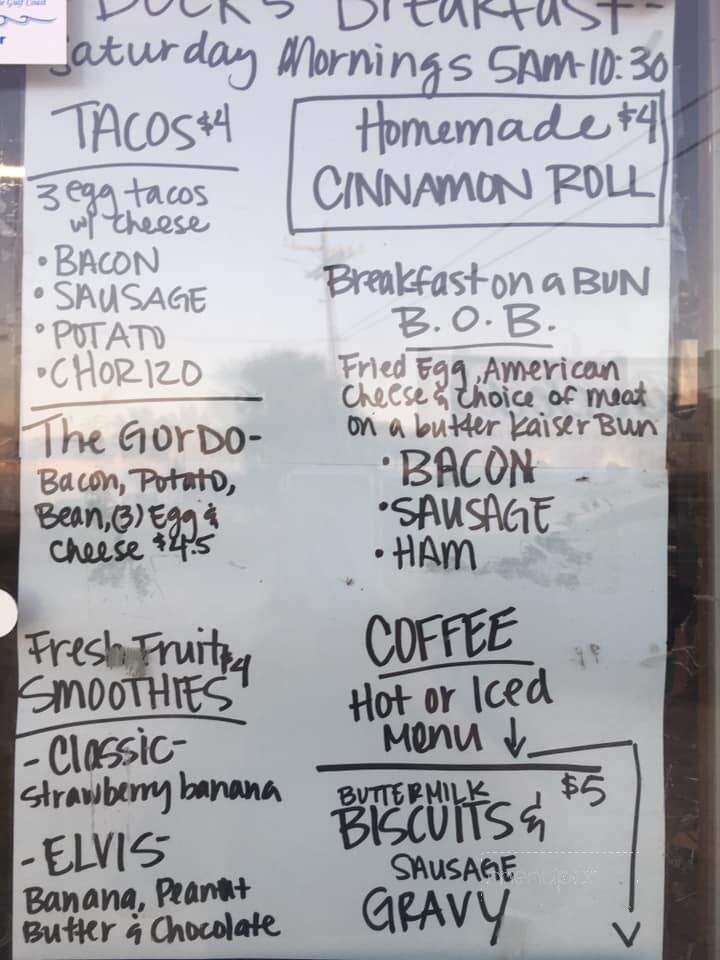 Gulf Coast
Breakfast-
Saturday Mornings 5AM-10:30
TACOS $4
3 egg tacos
w/ cheese
• BACON
• SAUSAGE
• POTATO
• CHORIZO
The GORDO-
Bacon, Potato,
Bean, (3) Egg &
cheese $4.5
Fresh Fruit $4
SMOOTHIES
- Classic-
strawberry banana
- ELVIS
Banana, Peanut
Butter & Chocolate
Homemade $4
CINNAMON ROLL
Breakfast on a BUN
B.O.B.
Fried Egg, American
Cheese & choice of meat
on a butter Kaiser Bun
• BACON
• SAUSAGE
• HAM
COFFEE
Hot or Iced
Menu ↓
BUTTERMILK $5
BISCUITS &
SAUSAGE
GRAVY
menupix